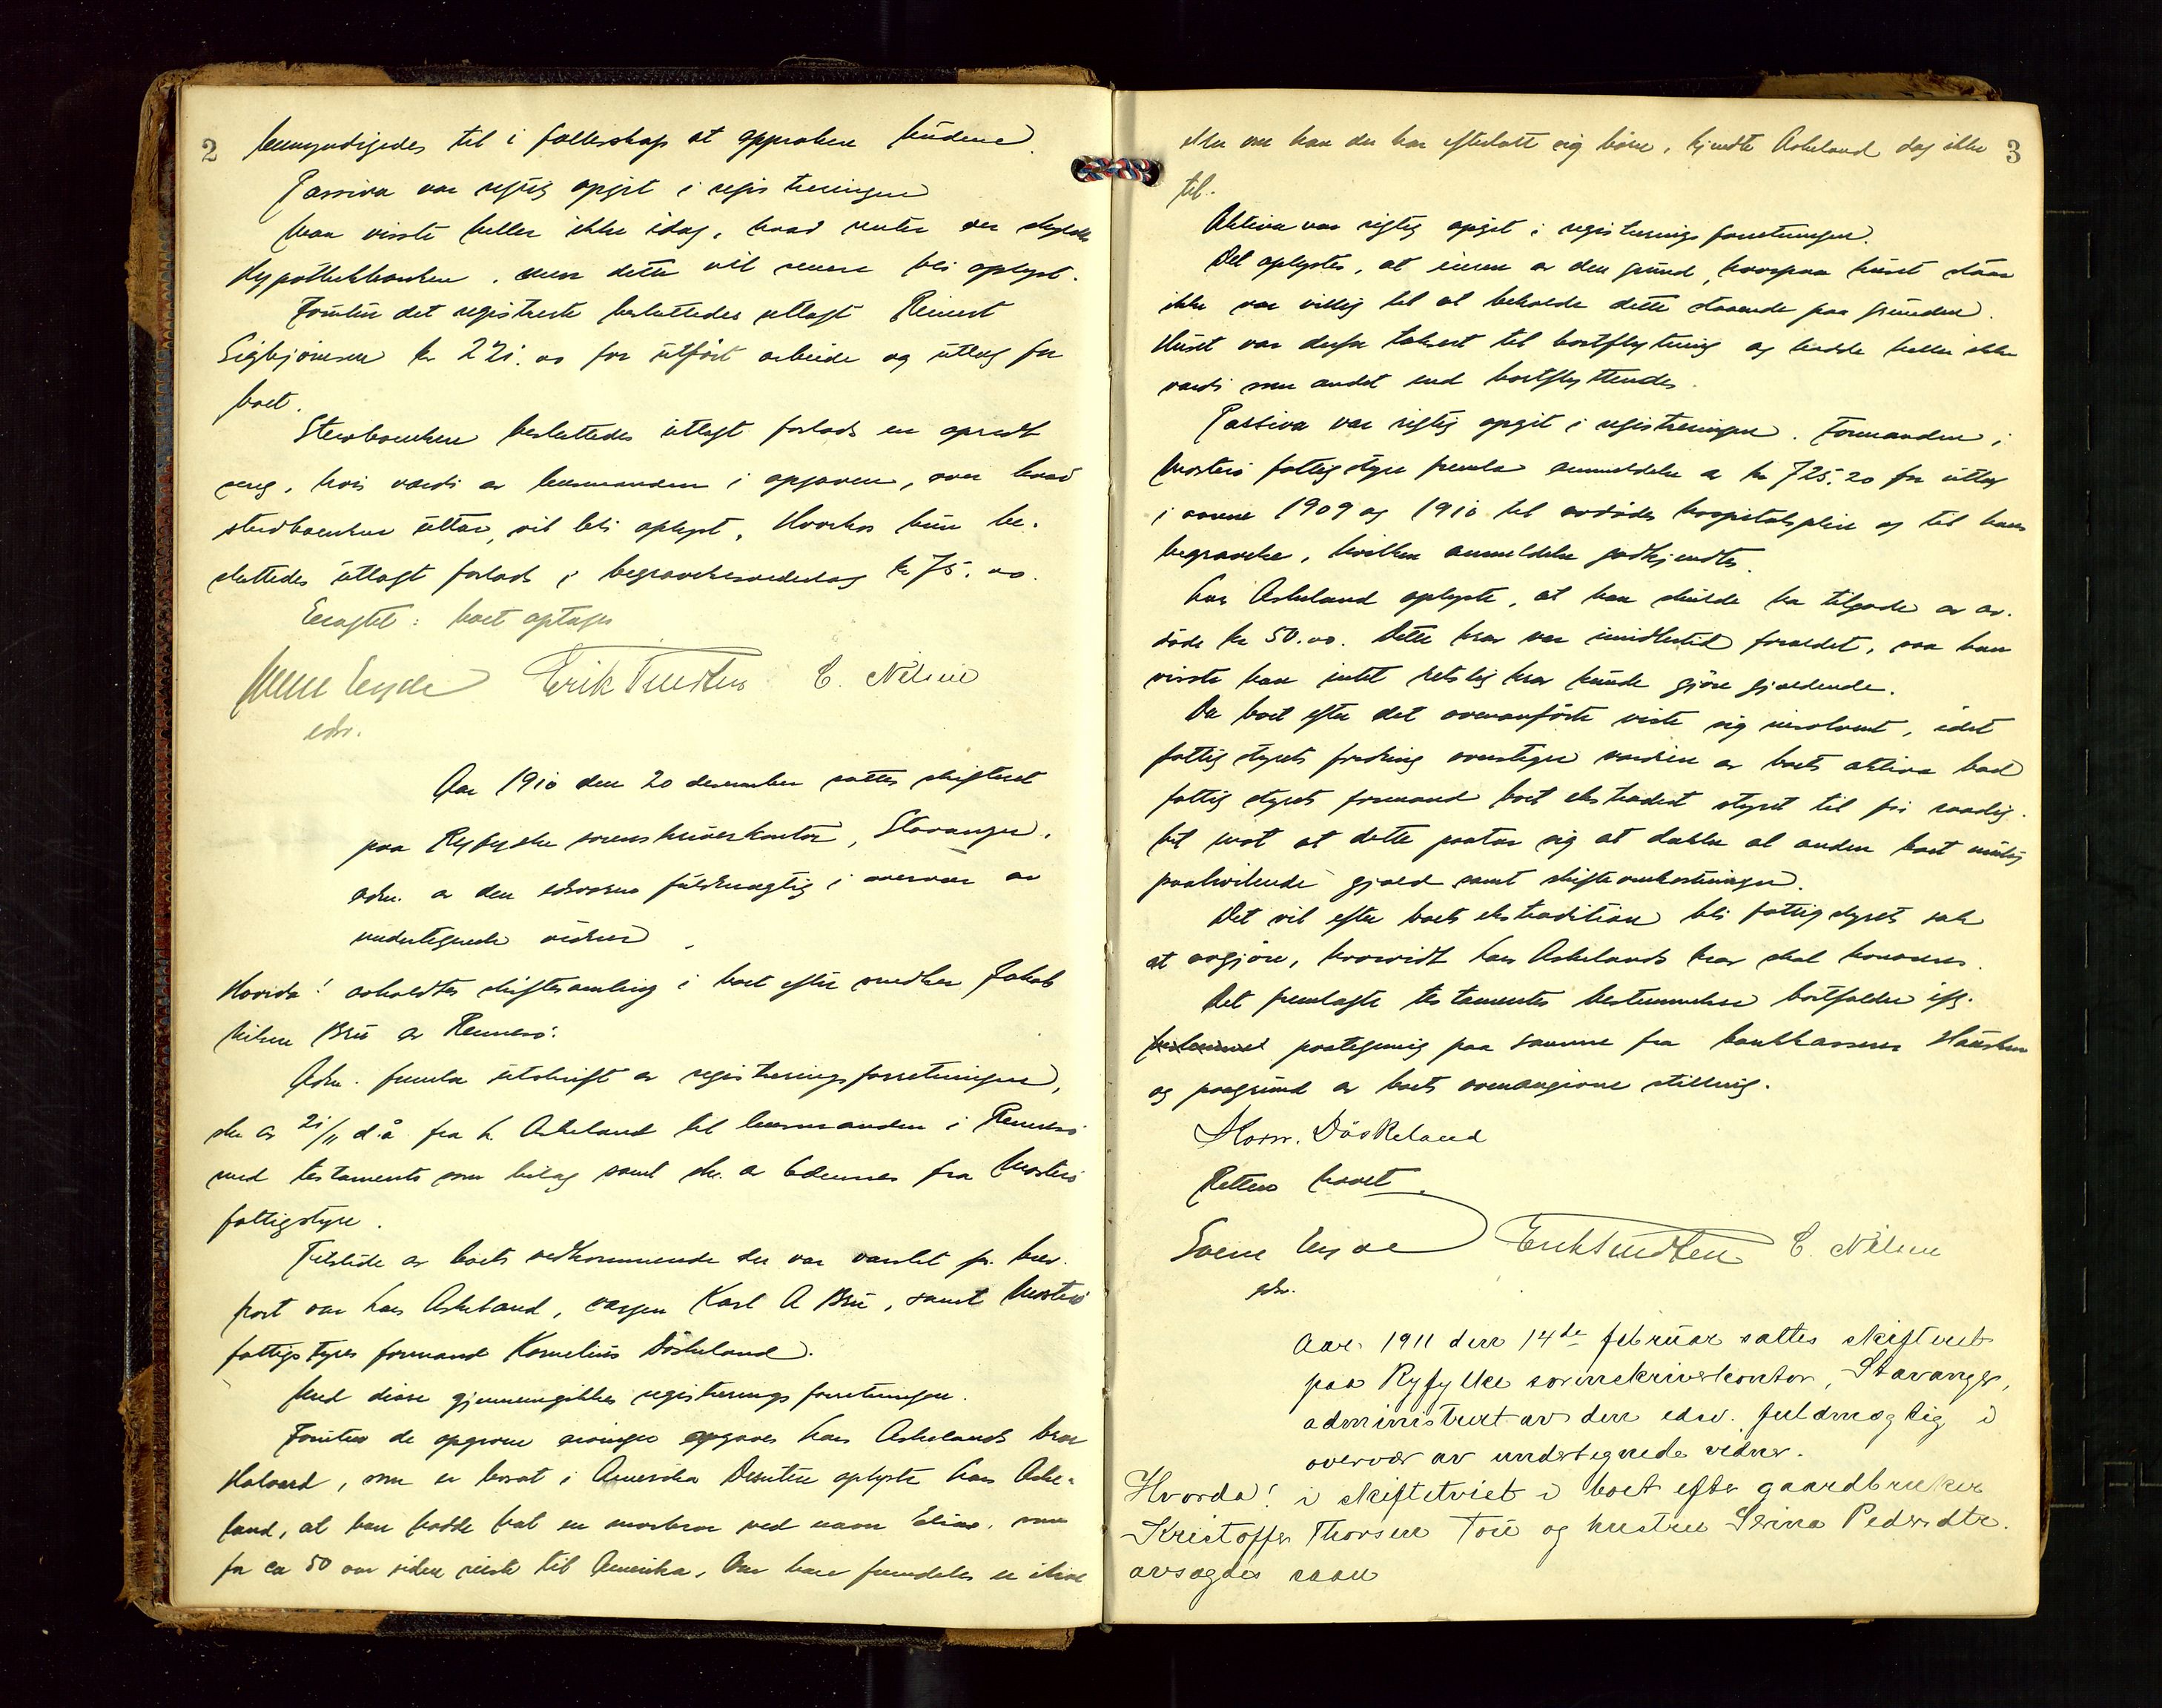 2
bemyndigedes til i fællesskap at approbere budene.
Passiva var rigtig opgit i registreringen
Man visste heller ikke idag, hvad renter der skyldes
Hypothekbanken, men dette vil senere bli oplyst.
Foruten det registrerte besluttedes utlagt Reinert
Sigbjörnsen kr 221.00 for utført arbeide og utlæg for
boet.
Sterboenken besluttedes utlagt forlods en opredt
seng, hvis værdi av lensmanden i opgaven, over hvad
sterboenken uttar, vil bli oplyst. Hvorhos hun be-
sluttedes utlagt forlods i begravelsesvederlag kr 75.00.
Eragtet: boet optages
Erik Knudsen E. Nilsen
edsv.
Aar 1910 den 20 desember sattes skifteret
paa Ryfylke sorenskriverkontor, Stavanger,
adm. av den edsvorne fuldmægtig i overvær av
undertegnede vidner.
Hvorda! avholdtes skiftesamling i boet efter snedker Jakob
Nilsen Bru av Rennesö.
Adm. fremla utskrift av registreringsforretningen,
skr. av 21/11 d.å. fra L. Askeland til lensmanden i Rennesö
med testamente som bilag samt skr. av 6 dennes fra Mosterö
fattigstyre.
Tilstede av boets vedkommende der var varslet pr. brev-
kort var Lars Askeland, vergen Karl A Bru, samt Mosterö
fattigstyres formand Kornelius Döskeland.
Med disse gjennemgikkes registreringsforretningen.
Foruten de opgivne arvinger opgaves Lars Askelands bror
Halvard, som er bosat i Amerika Desuten oplyste Lars Aske-
land, at han hadde hat en morbror ved navn Elias, som
for ca 50 aar siden reiste til Amerika. Om han fremdeles er ilive
3
eller om han der har efterlatt sig börn, kjendte Askeland dog ikke
til.
Aktiva var rigtig opgit i registreringsforretningen.
Det oplystes, at eieren av den grund, hvorpaa huset staar
ikke var villig til at beholde dette staaende paa grunden.
Huset var derfor takseret til bortflytning og hadde heller ikke
værdi som andet end bortflyttendes.
Passiva var rigtig opgit i registreringen. Formanden i
Mosterö fattigstyre fremla anmeldelse av kr 725.20 for utlæg
i aarene 1909 og 1910 til avdödes hospitalspleie og til hans
begravelse, hvilken anmeldelse godkjendtes.
Lars Askeland oplyste, at han skulde ha tilgode av av-
döde kr 50.00. Dette krav var imidlertid forældet, saa han
visste han intet retslig krav kunde gjöre gjældende.
Da boet efter det ovenanförte viste sig insolvent, idet
fattigstyrets fordring overstiger værdien av boets aktiva bad
fattigstyrets formand boet ekstradert styret til fri raadig-
het mot at dette paatar sig at dække al anden boet mulig
paahvilende gjæld samt skifteomkostninger.
Det vil efter boets ekstradition bli fattigstyrets sak
at avgjöre, hvorvidt Lars Askelands krav skal honoreres.
Det fremlagte testamentes bestemmelser bortfalder iflg.
paategning paa samme fra bankkasserer Hausken
og paagrund av boets ovenangivne stilling.
Korn. Döskeland
Retten hævet.
Svein Erik Knudsen E. Nilsen
edsv.
Aar 1911 den 14de februar sattes skifteret
paa Ryfylke sorenskriverkontor, Stavanger,
administrert av den edsv. fuldmægtig i
overvær av undertegnede vidner.
Hvorda! i skiftetvist i boet efter gaardbruker
Kristoffer Thorsen Tou og hustru Serina Pedersdtr.
avsagdes saan